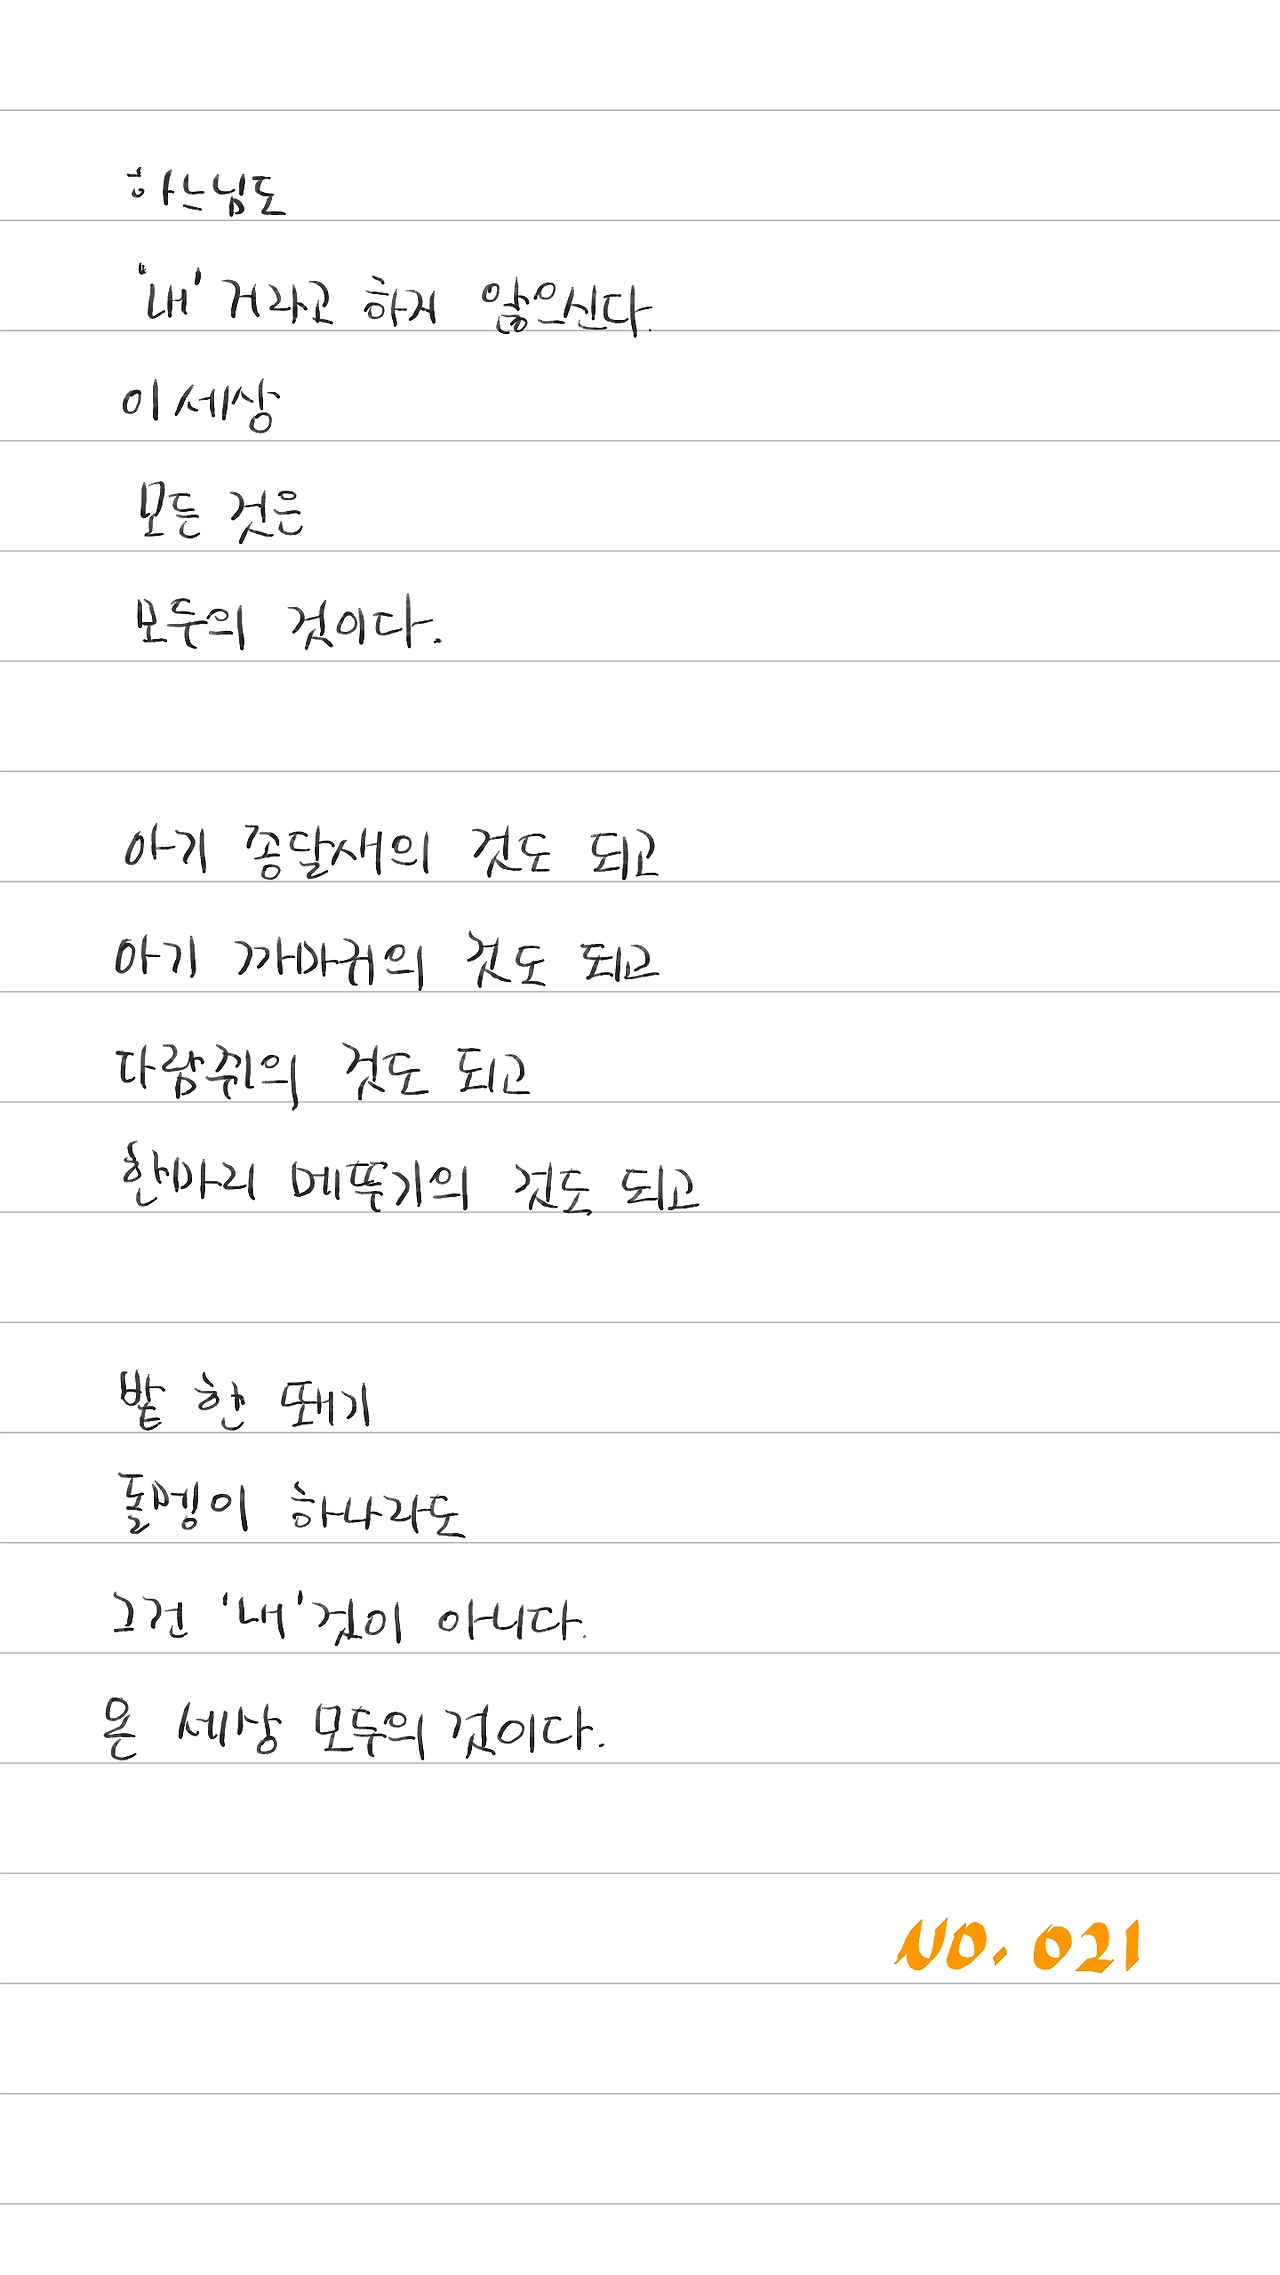 하느님도
'내' 거라고 하지 않으신다.
이 세상
모든 것은
모두의 것이다.
아기 종달새의 것도 되고
아기 까마귀의 것도 되고
다람쥐의 것도 되고
한마리 메뚜기의 것도 되고
밭 한 뙈기
돌멩이 하나라도
그건 '내' 것이 아니다.
온 세상 모두의 것이다.
NO. 021